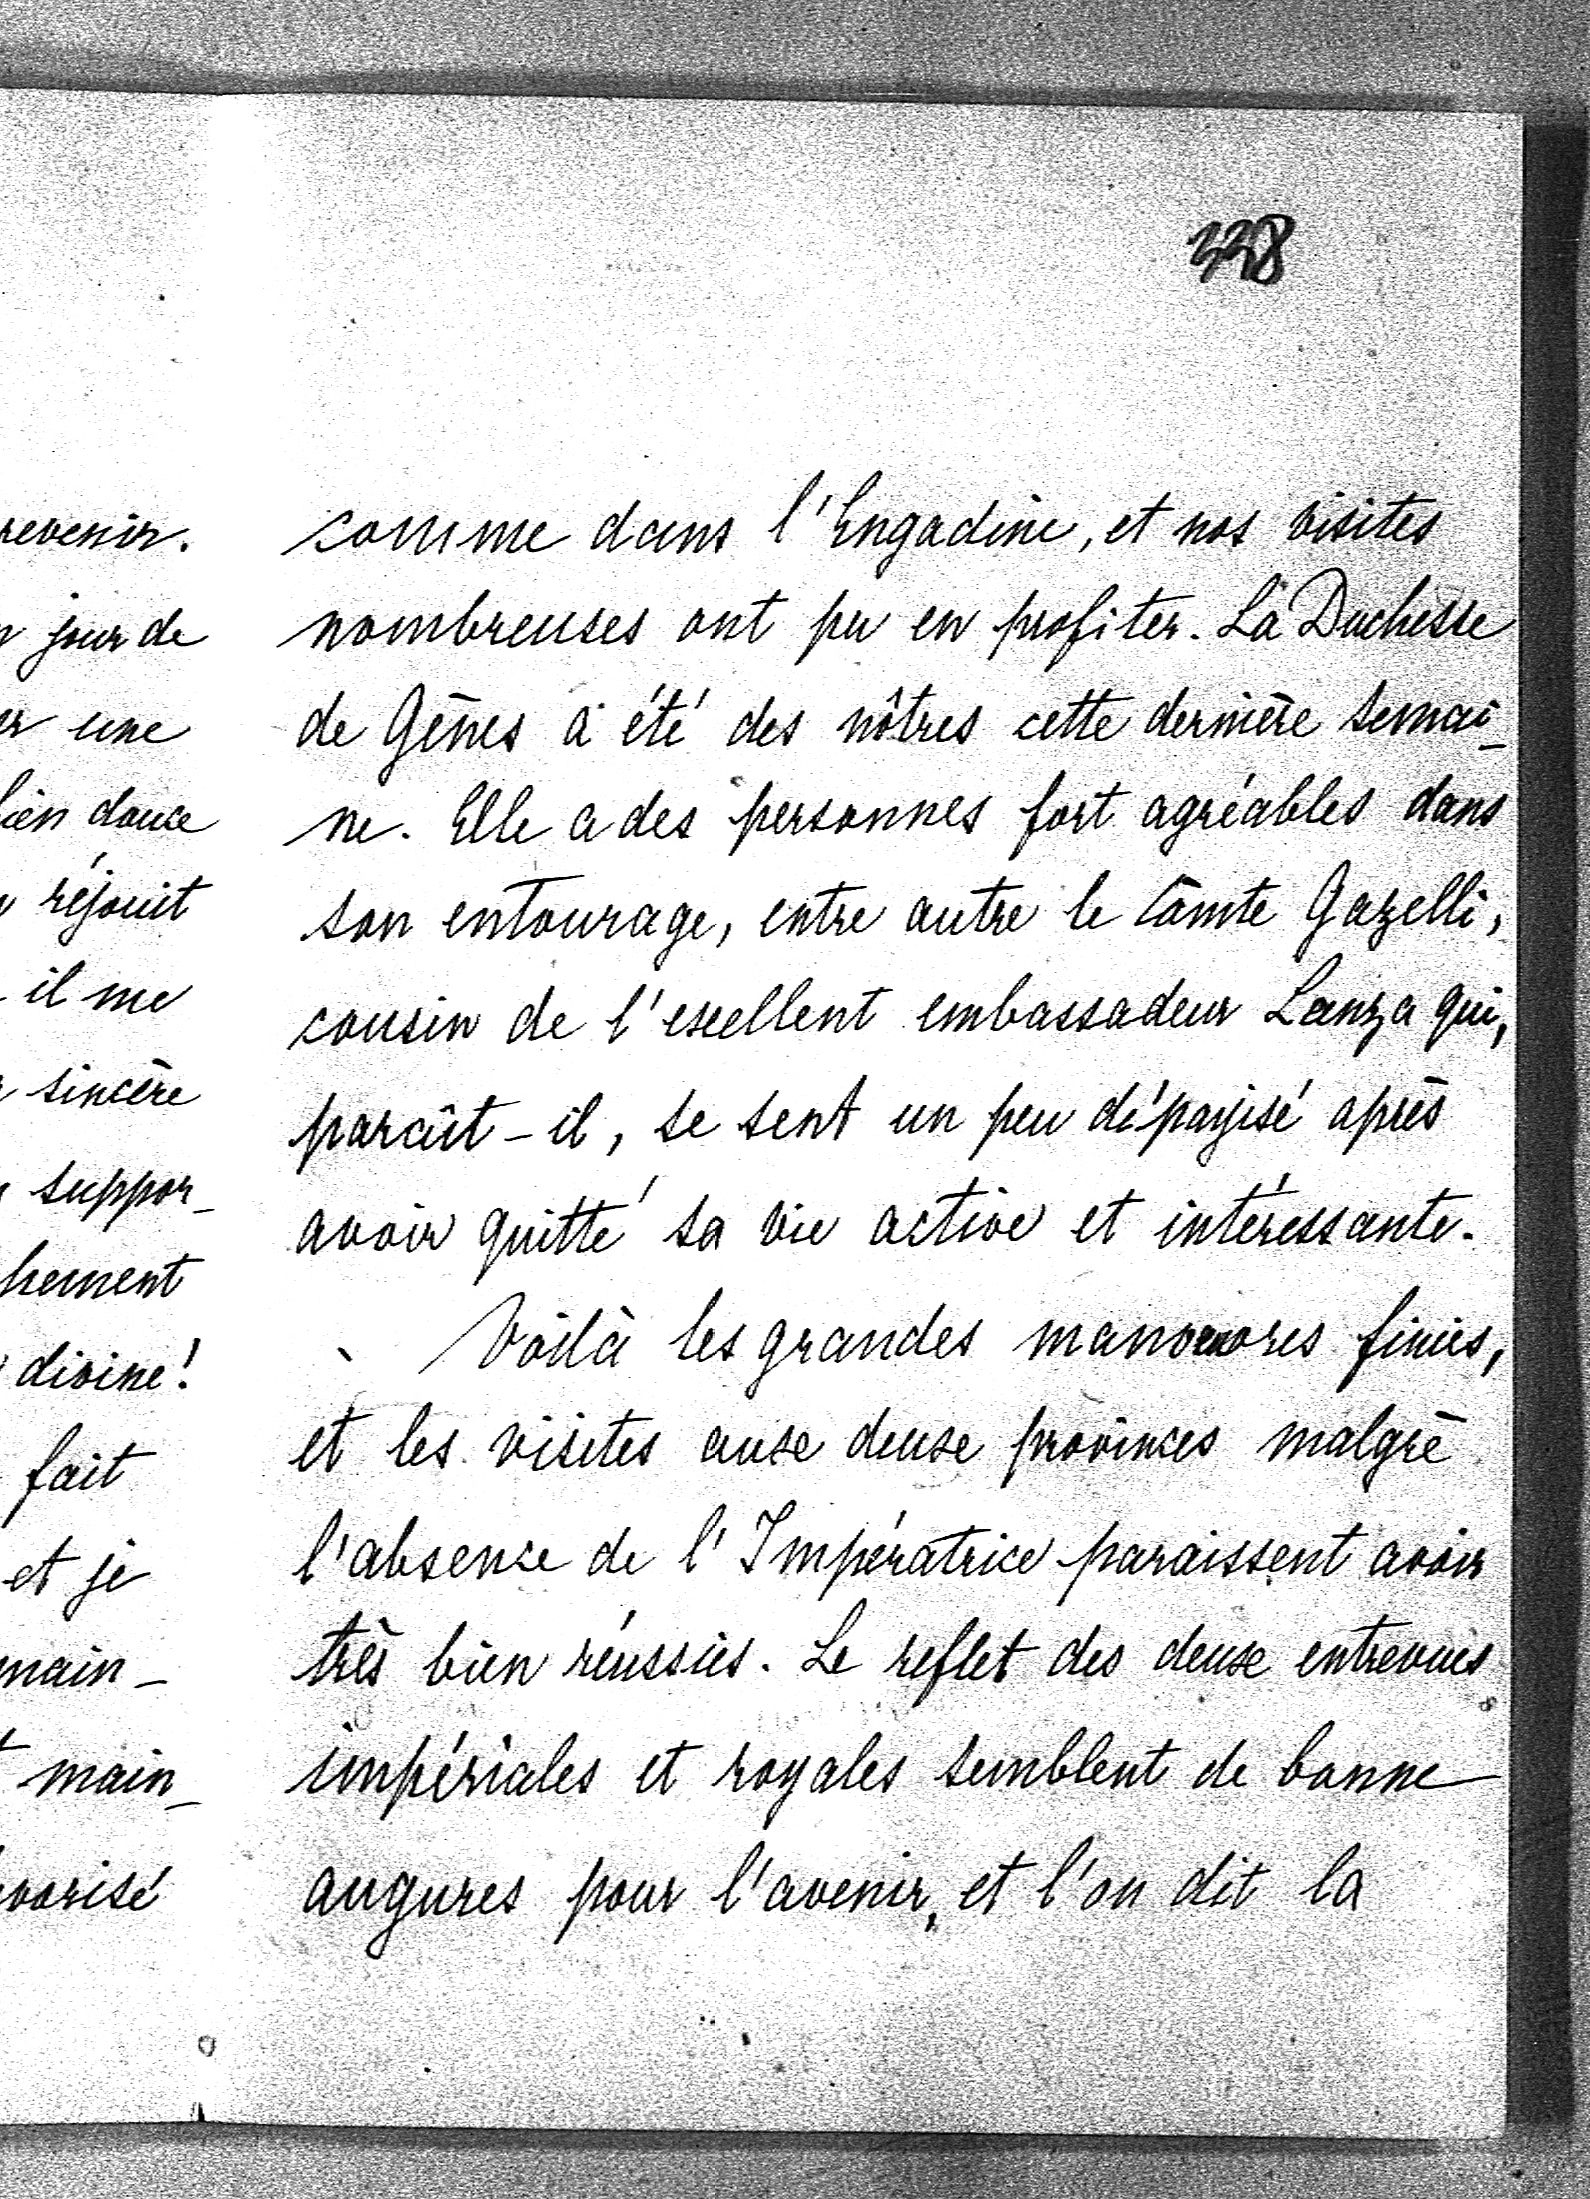 338
revenir.
jour de
une
bien douce
réjouit
il me
sincère
suppor-
hement
divine!
fait
et je
main-
main-
vorisé
comme dans l'Engadine, et nos visites
nombreuses ont pu en profiter. La Duchesse
de Gênes a été des nôtres cette dernière semai-
ne. Elle a des personnes fort agréables dans
son entourage, entre autre le Comte Gazelli,
cousin de l'excellent embassadeur Lanza qui,
paraît-il, se sent un peu dépaysé après
avoir quitté sa vie active et intéressante.
Voilà les grandes manoeuvres finies,
et les visites aux deux provinces malgré
l'absence de l'Impératrice paraissent avoir
très bien réussies. Le reflet des deux entrevues
impériales et royales semblent de bonne
augures pour l'avenir, et l'on dit la